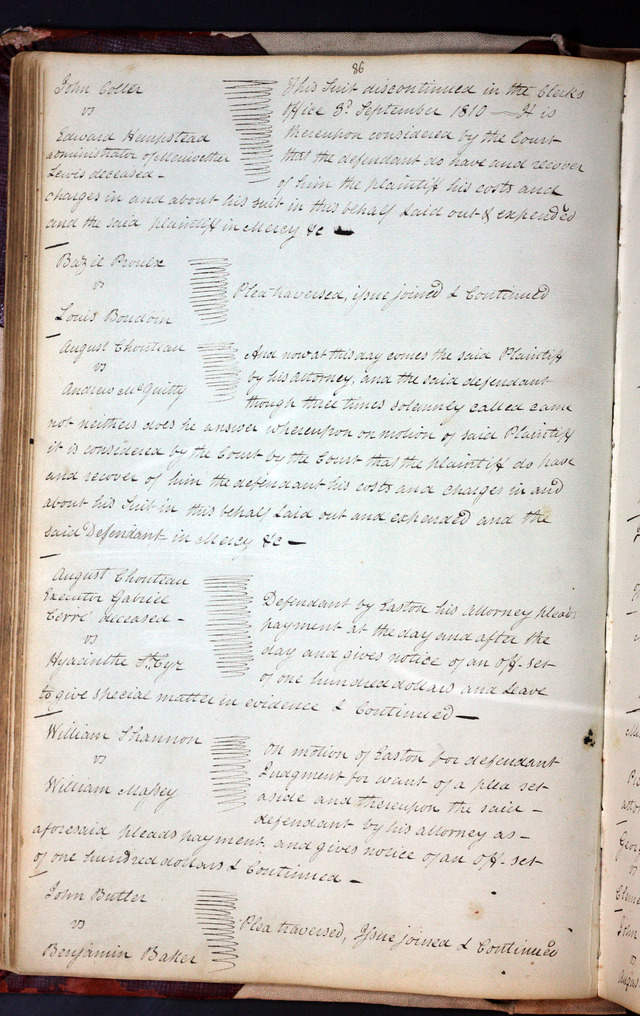 86
John Coller
vs
Edward Hempstead
administrator of Meriwether
Lewis deceased -
This Suit discontinued in the Clerks
Office 3d. September 1810 — It is
thereupon considered by the Court
that the defendant do have and recover
of him the plaintiff his costs and
charges in and about his suit in this behalf laid out & expended
and the said plaintiff in Mercy &c —
Bazil Proulx
vs
Louis Boudoin
Plea traversed, issue joined & Continued
August Chouteau
vs
Andrew McQuitty
And now at this day comes the said Plaintiff
by his attorney, and the said defendant
though three times solemnly called came
not neither does he answer whereupon on motion of said Plaintiff
it is considered by the Court by the Court that the plaintiff do have
and recover of him the defendant his costs and charges in and
about his Suit in this behalf laid out and expended and the
said Defendant in Mercy &c —
August Chouteau
Executor Gabriel
Cerré deceased -
vs
Hyacinthe St. Cyr
Defendant by Easton his attorney pleads
payment at the day and after the
day and gives notice of an off-set
of one hundred dollars and leave
to give special matter in evidence & Continued —
William Shannon
vs
William Massey
On motion of Easton for defendant
Judgment for want of a plea set
aside and thereupon the said -
defendant by his attorney as -
aforesaid pleads payment, and gives notice of an off-set
of one hundred dollars & Continued -
John Butler
vs
Benjamin Baker
Plea traversed, Issue joined & Continued